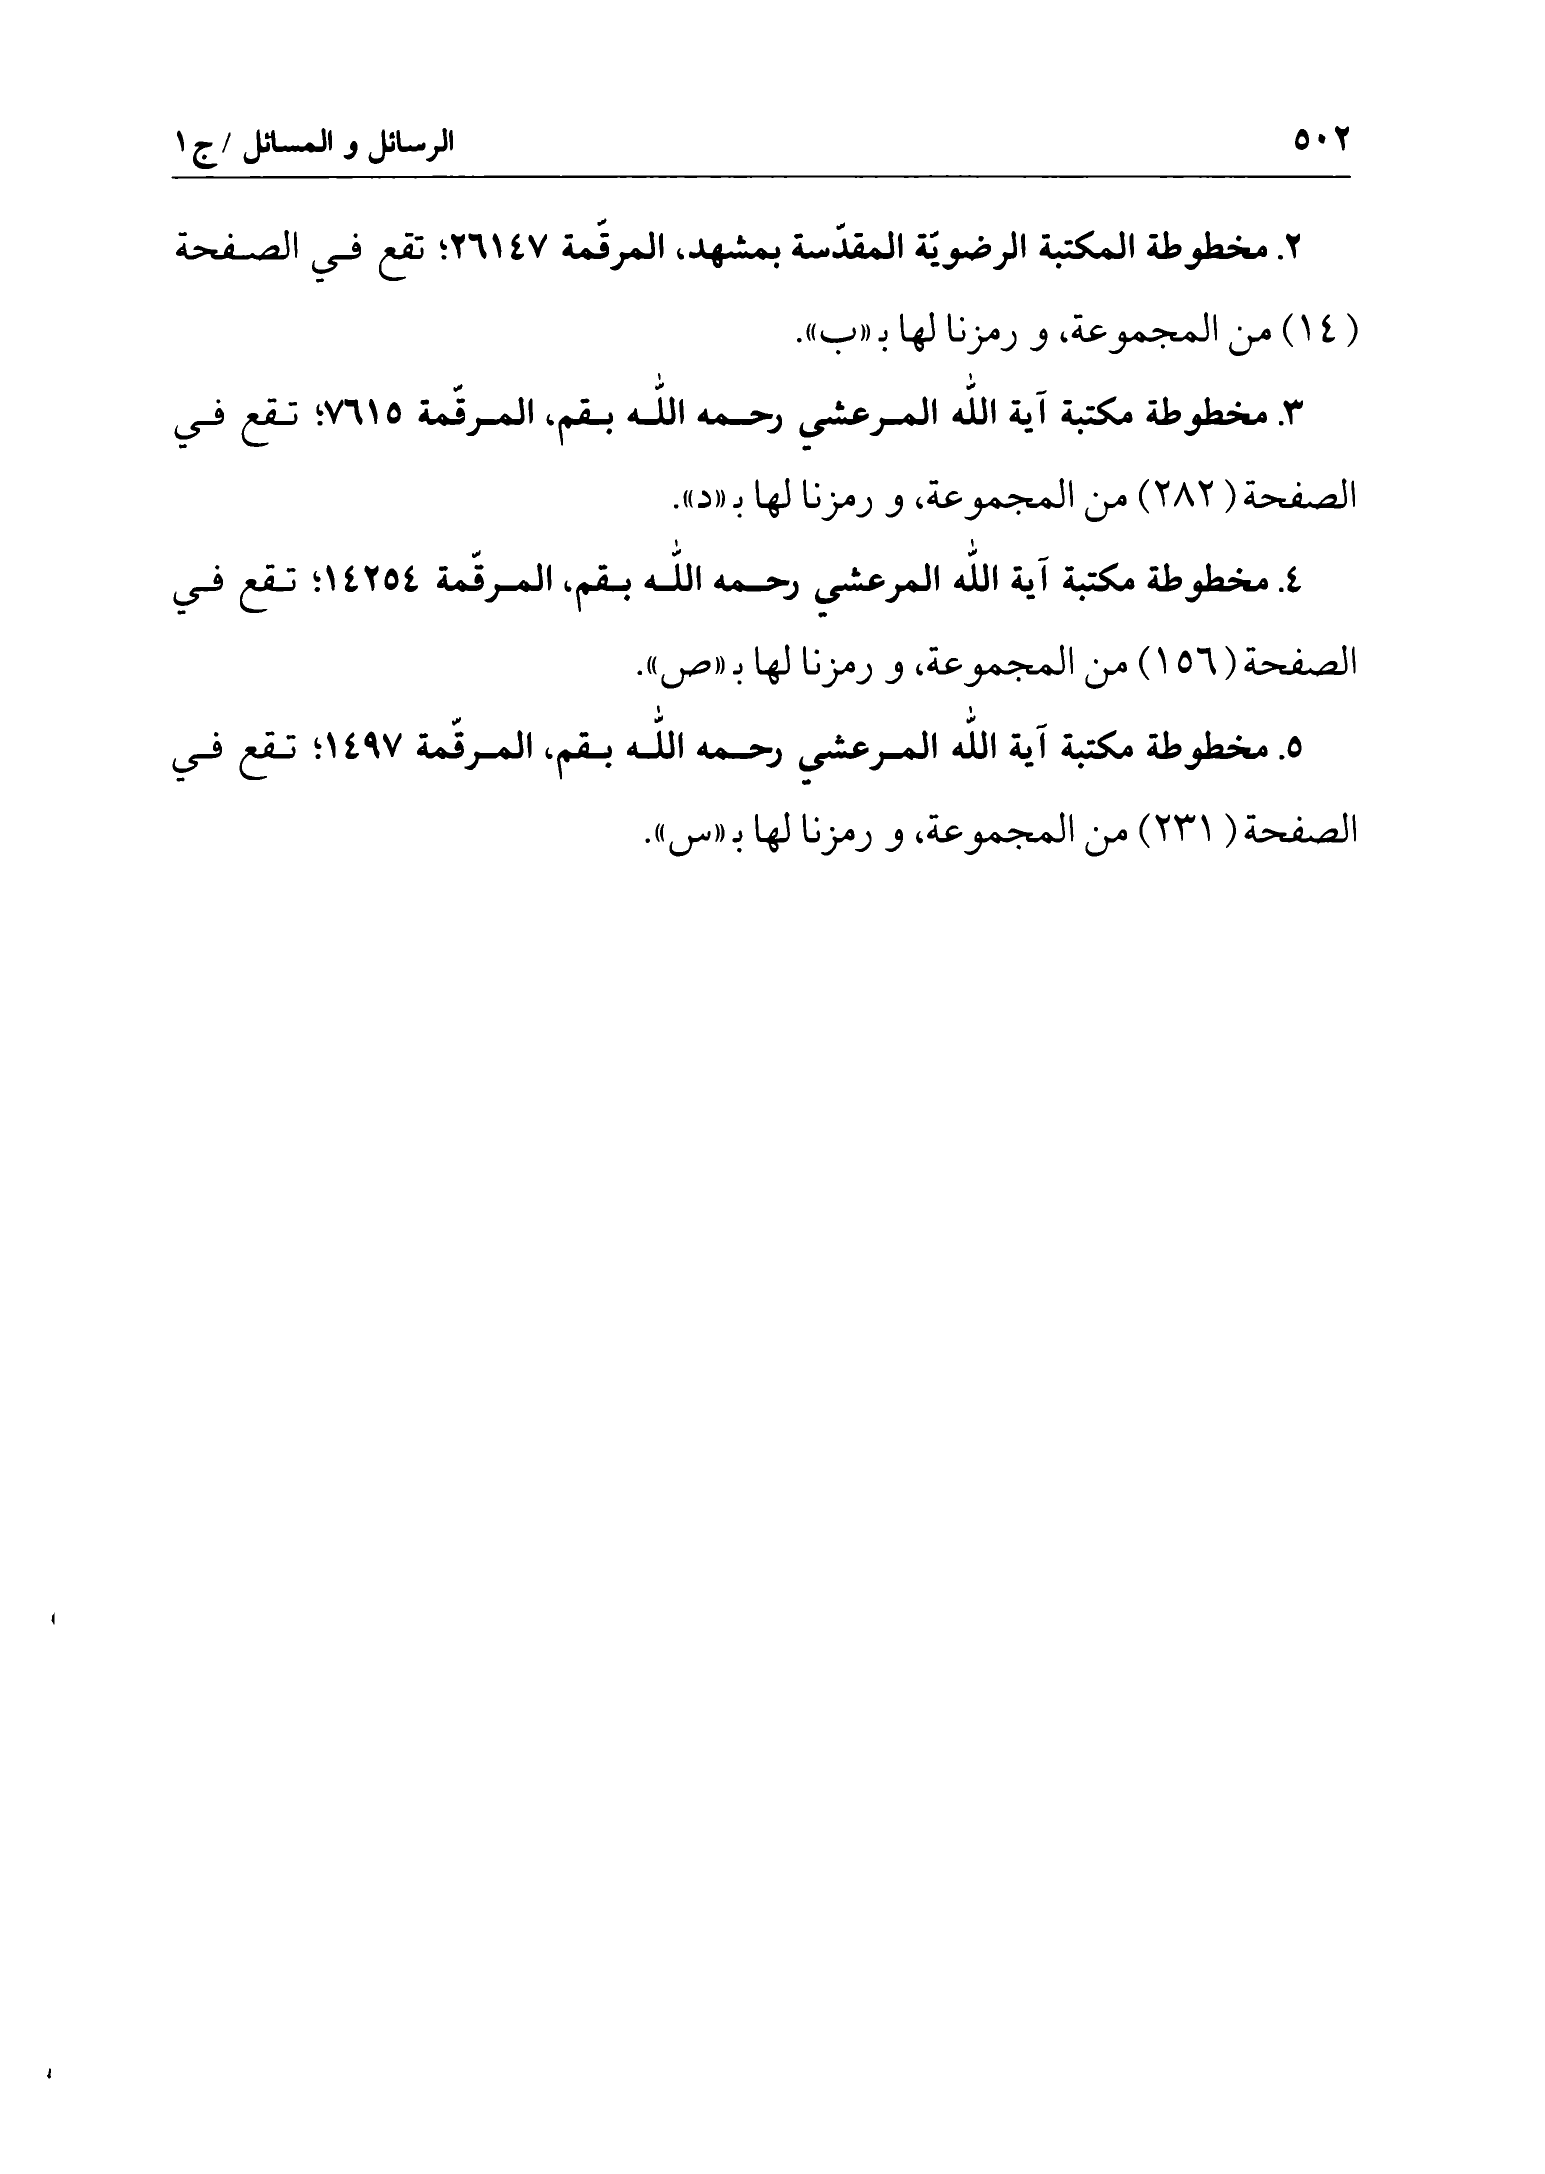 ٥٠٢
الرسائل و المسائل / ج١
٢. مخطوطة المكتبة الرضويّة المقدّسة بمشهد، المرقّمة ٢٦١٤٧؛ تقع في الصفحة
(١٤) من المجموعة، و رمزنا لها بـ «ب».
٣. مخطوطة مكتبة آية اللّه المرعشي رحمه اللّه بقم، المرقّمة ٧٦١٥؛ تقع في
الصفحة (٢٨٢) من المجموعة، و رمزنا لها بـ «د».
٤. مخطوطة مكتبة آية اللّه المرعشي رحمه اللّه بقم، المرقّمة ١٤٢٥٤؛ تقع في
الصفحة (١٥٦) من المجموعة، و رمزنا لها بـ «ص».
٥. مخطوطة مكتبة آية اللّه المرعشي رحمه اللّه بقم، المرقّمة ١٤٩٧؛ تقع في
الصفحة (٢٣١) من المجموعة، و رمزنا لها بـ «س».